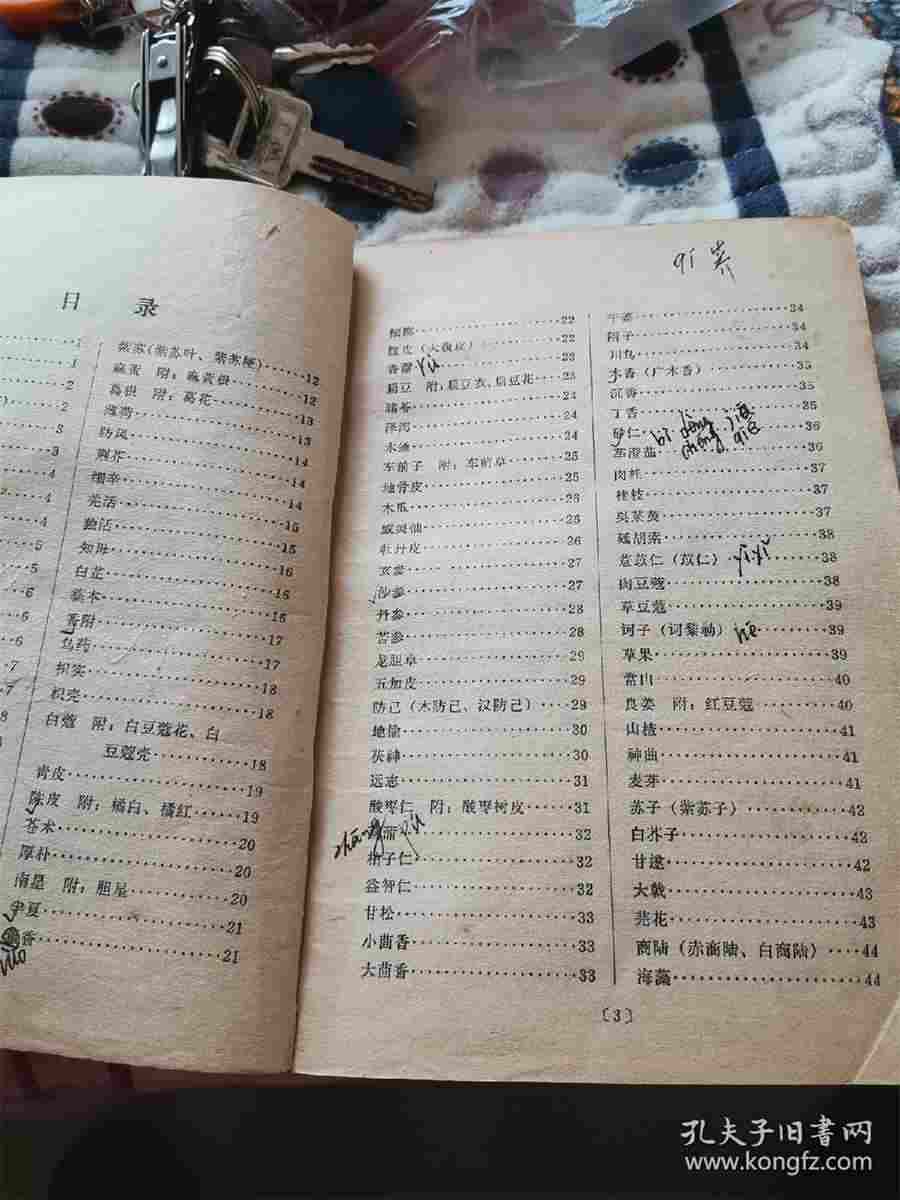 目 录
1
1
2
2
3
3
4
4
5
5
6
6
6
7
7
8
紫苏(紫苏叶、紫苏梗)……12
麻黄 附：麻黄根……12
葛根 附：葛花……13
薄荷……13
防风……14
荆芥……14
细辛……14
羌活……15
独活……15
知母……16
白芷……16
藁本……16
香附……17
乌药……17
枳实……18
枳壳……18
白蔻 附：白豆蔻花、白
豆蔻壳……18
青皮……19
陈皮 附：橘白、橘红……19
苍术……20
厚朴……20
南星 附：胆星……20
半夏……21
香……21
槟榔……22
腹皮（大腹皮）……22
香薷……23
rú
扁豆 附：扁豆衣、扁豆花……23
猪苓……24
泽泻……24
木通……24
车前子 附：车前草……25
地骨皮……25
木瓜……25
威灵仙……25
牡丹皮……26
玄参……27
沙参……27
丹参……28
苦参……28
龙胆草……29
五加皮……29
防己（木防己、汉防己）……29
地榆……30
茯神……30
远志……31
酸枣仁 附：酸枣树皮……31
蒲……32
柏子仁……32
益智仁……32
甘松……33
小茴香……33
大茴香……33
qi 荠
干姜……34
附子……34
川乌……34
木香（广木香）……35
沉香……35
丁香……35
砂仁……36
荜澄茄……36
肉桂……37
桂枝……37
吴茱萸……37
延胡索……38
薏苡仁（苡仁）……38
yì yǐ
肉豆蔻……38
草豆蔻……39
诃子（诃黎勒）……39
hē
草果……39
常山……40
良姜 附：红豆蔻……40
山楂……41
神曲……41
麦芽……41
苏子（紫苏子）……42
白芥子……42
甘遂……42
大戟……43
芫花……43
商陆（赤商陆、白商陆）……44
海藻……44
〔3〕
孔夫子旧书网
www.kongfz.com